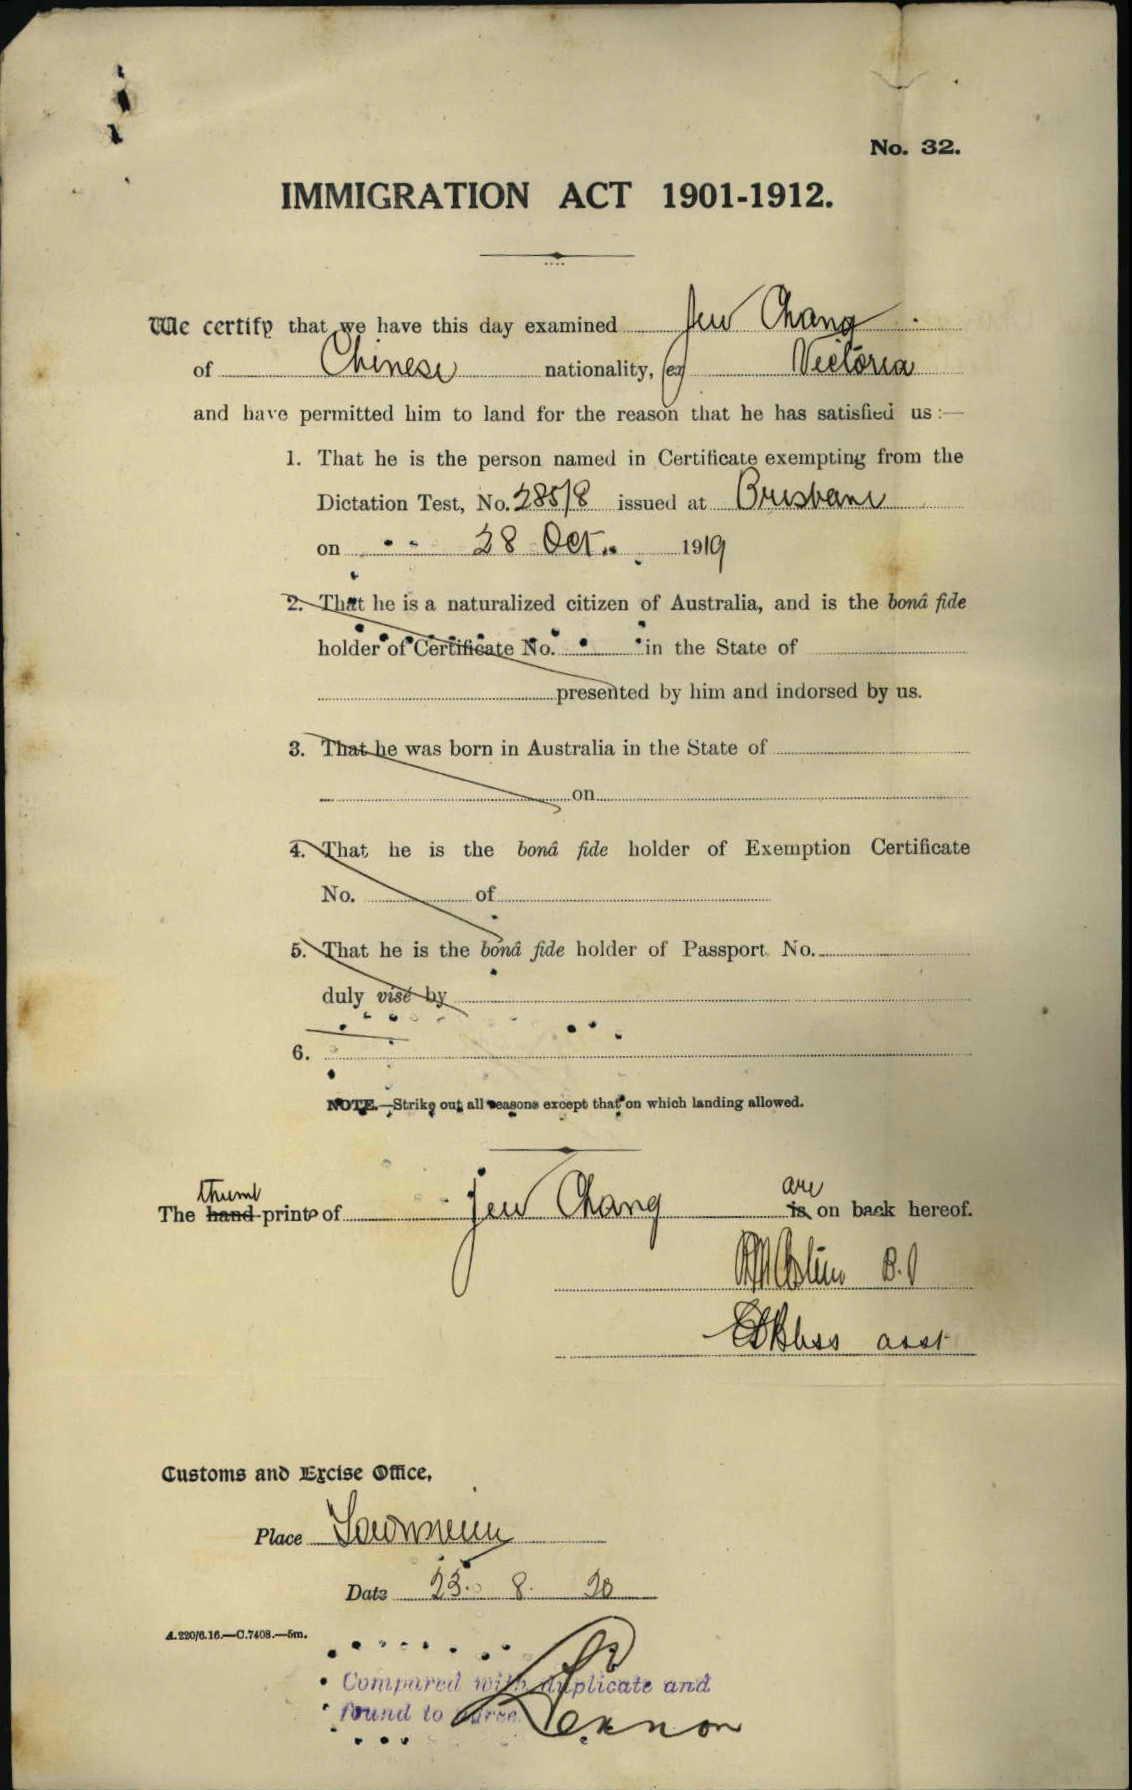 No. 32.
IMMIGRATION ACT 1901-1912.
We certify that we have this day examined Jew Chang
of Chinese nationality, (ex) Victoria
and have permitted him to land for the reason that he has satisfied us :—
1. That he is the person named in Certificate exempting from the
Dictation Test, No. 285/8 issued at Brisbane
on 28 Oct. 1919
2. That he is a naturalized citizen of Australia, and is the bonâ fide
holder of Certificate No. in the State of
presented by him and indorsed by us.
3. That he was born in Australia in the State of
on
4. That he is the bonâ fide holder of Exemption Certificate
No. of
5. That he is the bonâ fide holder of Passport No.
duly visé by
6.
NOTE.—Strike out all reasons except that on which landing allowed.
thumb are
The hand prints of Jew Chang is on back hereof.
B.I
asst
Customs and Excise Office,
Place
Date 23. 8. 20
A.220/6.16.—C.7408.—5m.
Compared with duplicate and
found to agree
Lennon